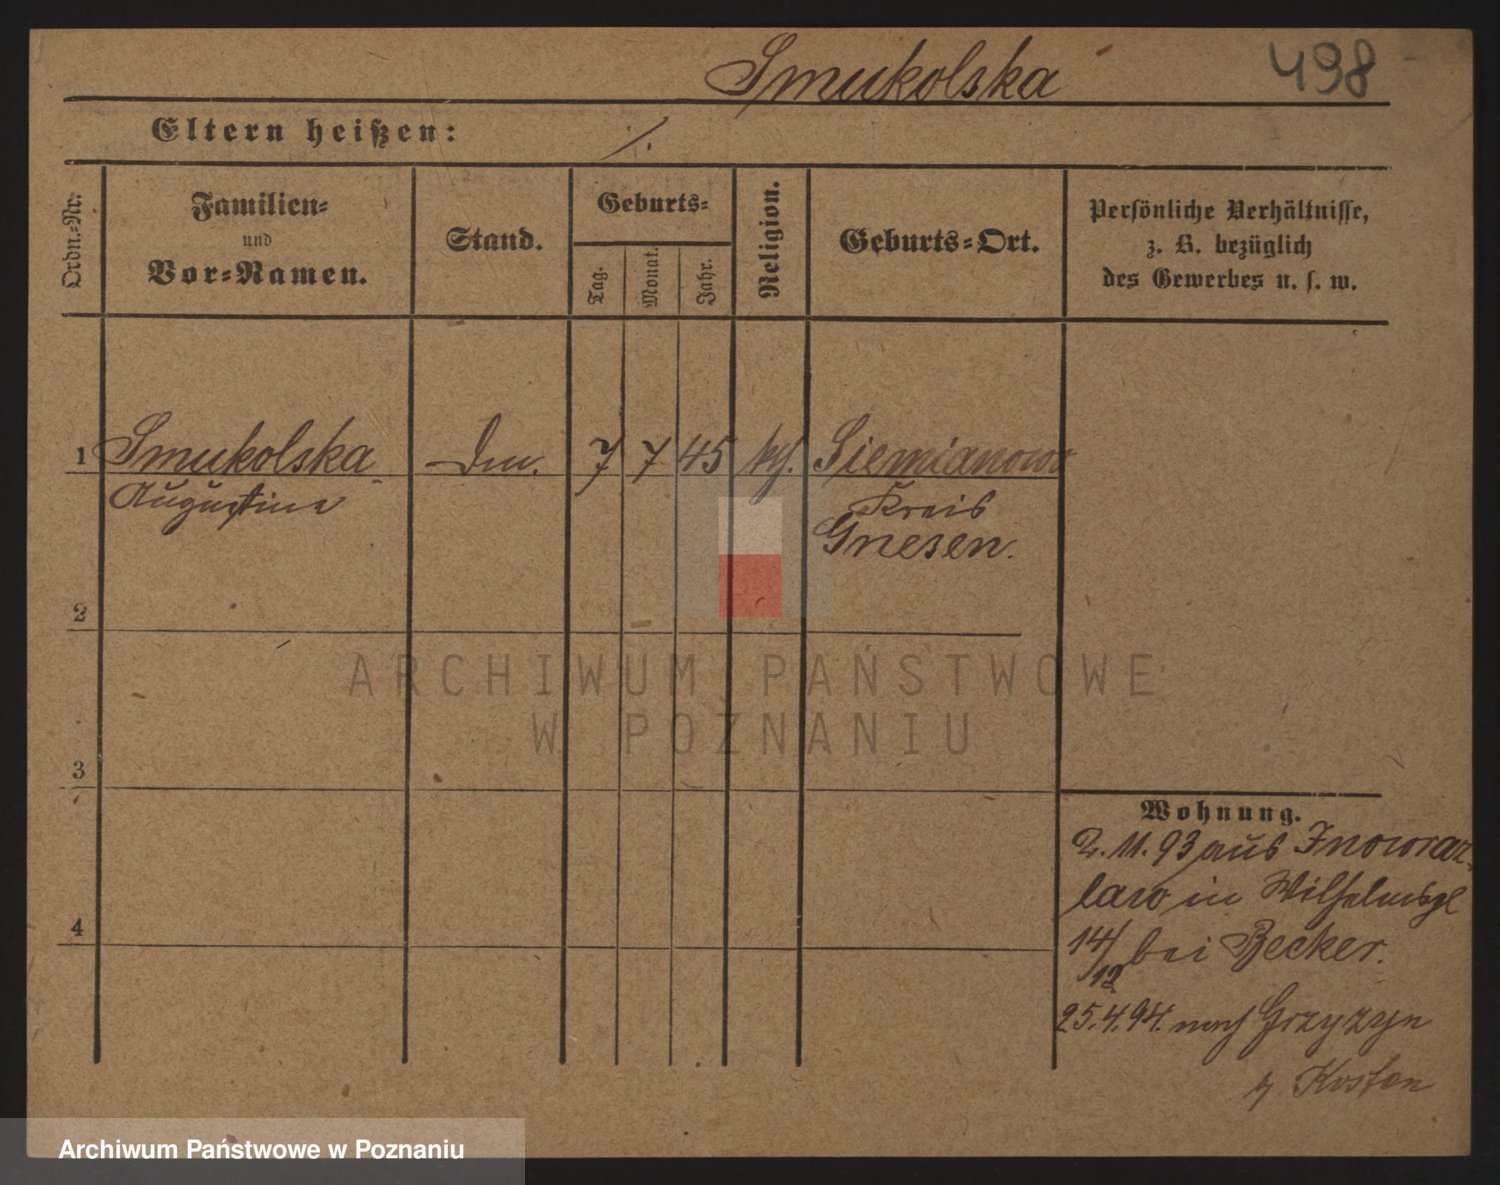 Smukolska
498
Eltern heißen: ·/.
Ordn.-Nr.
Familien-
und
Vor-Namen.
Stand.
Geburts-
Tag.
Monat.
Jahr.
Religion.
Geburts-Ort.
Persönliche Verhältnisse,
z. B. bezüglich
des Gewerbes u. s. w.
1 Smukolska 7 7 45 Siemianowo
Augustine Kreis
Gnesen.
2
3
4
Wohnung.
2.11.93 aus Inowraz-
law in Wilhelmspl
14/12 bei Becker.
25.4.94. nach
Kosten
ARCHIWUM PAŃSTWOWE
W POZNANIU
Archiwum Państwowe w Poznaniu